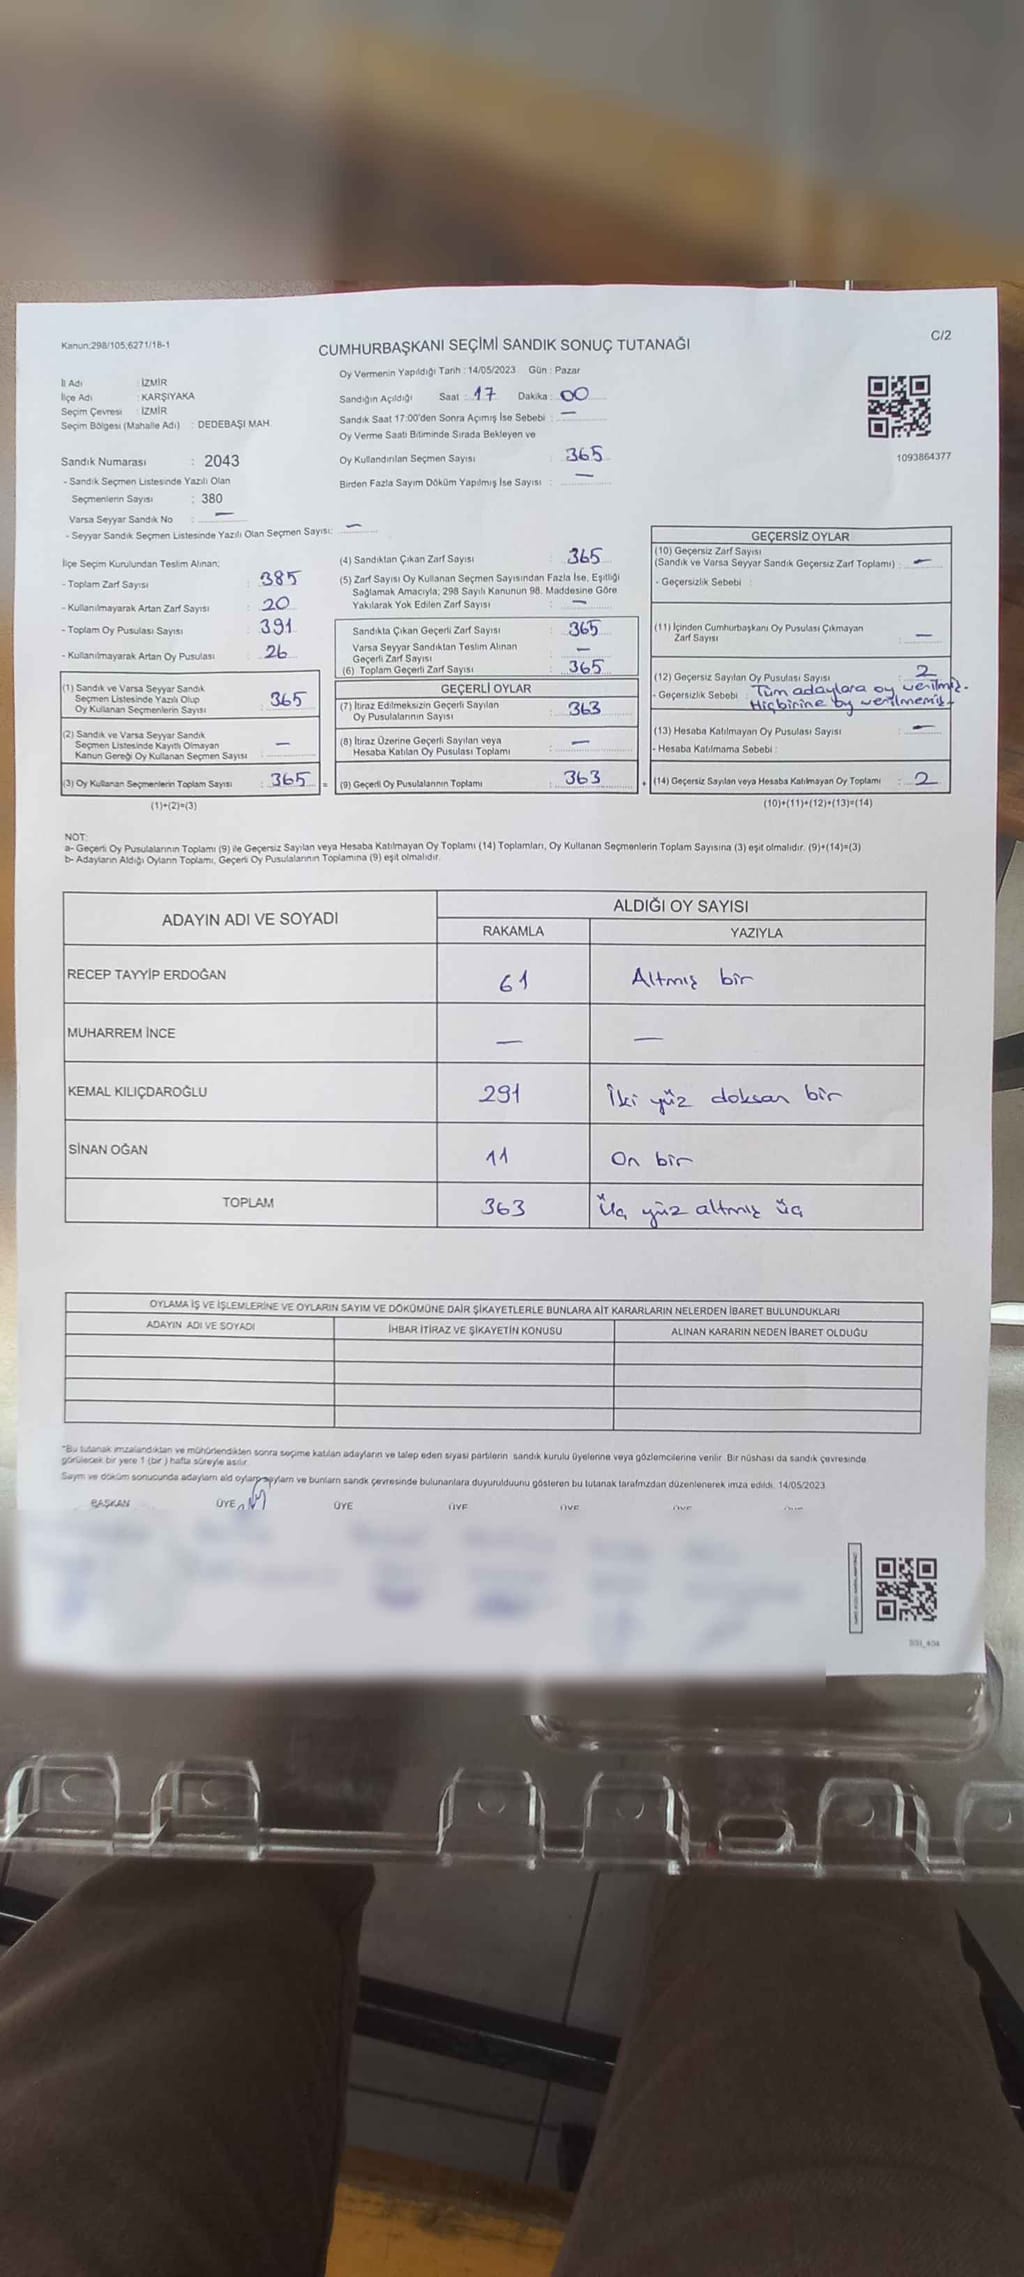 Kanun:298/105;6271/18-1
C/2
CUMHURBAŞKANI SEÇİMİ SANDIK SONUÇ TUTANAĞI
Oy Vermenin Yapıldığı Tarih : 14/05/2023 Gün : Pazar
İl Adı : İZMİR
İlçe Adı : KARŞIYAKA
Seçim Çevresi : İZMİR
Seçim Bölgesi (Mahalle Adı) : DEDEBAŞI MAH.
Sandığın Açıldığı Saat : 17 Dakika : 00
Sandık Saat 17:00'den Sonra Açımış İse Sebebi : —
Oy Verme Saati Bitiminde Sırada Bekleyen ve
Oy Kullandırılan Seçmen Sayısı : 365
Birden Fazla Sayım Döküm Yapılmış İse Sayısı : —
1093864377
Sandık Numarası : 2043
- Sandık Seçmen Listesinde Yazılı Olan
Seçmenlerin Sayısı : 380
Varsa Seyyar Sandık No : —
- Seyyar Sandık Seçmen Listesinde Yazılı Olan Seçmen Sayısı: —
İlçe Seçim Kurulundan Teslim Alınan;
- Toplam Zarf Sayısı : 385
- Kullanılmayarak Artan Zarf Sayısı : 20
- Toplam Oy Pusulası Sayısı : 391
- Kullanılmayarak Artan Oy Pusulası : 26
(1) Sandık ve Varsa Seyyar Sandık
Seçmen Listesinde Yazılı Olup
Oy Kullanan Seçmenlerin Sayısı : 365
(2) Sandık ve Varsa Seyyar Sandık
Seçmen Listesinde Kayıtlı Olmayan
Kanun Gereği Oy Kullanan Seçmen Sayısı : —
(3) Oy Kullanan Seçmenlerin Toplam Sayısı : 365 =
(1)+(2)=(3)
(4) Sandıktan Çıkan Zarf Sayısı : 365
(5) Zarf Sayısı Oy Kullanan Seçmen Sayısından Fazla İse, Eşitliği
Sağlamak Amacıyla; 298 Sayılı Kanunun 98. Maddesine Göre
Yakılarak Yok Edilen Zarf Sayısı : —
Sandıkta Çıkan Geçerli Zarf Sayısı : 365
Varsa Seyyar Sandıktan Teslim Alınan
Geçerli Zarf Sayısı : —
(6) Toplam Geçerli Zarf Sayısı : 365
GEÇERLİ OYLAR
(7) İtiraz Edilmeksizin Geçerli Sayılan
Oy Pusulalarının Sayısı : 363
(8) İtiraz Üzerine Geçerli Sayılan veya
Hesaba Katılan Oy Pusulası Toplamı : —
(9) Geçerli Oy Pusulalarının Toplamı : 363 +
GEÇERSİZ OYLAR
(10) Geçersiz Zarf Sayısı
(Sandık ve Varsa Seyyar Sandık Geçersiz Zarf Toplamı) : —
- Geçersizlik Sebebi :
(11) İçinden Cumhurbaşkanı Oy Pusulası Çıkmayan
Zarf Sayısı : —
(12) Geçersiz Sayılan Oy Pusulası Sayısı : 2
- Geçersizlik Sebebi : Tüm adaylara oy verilmiş.
Hiçbirine oy verilmemiş.
(13) Hesaba Katılmayan Oy Pusulası Sayısı : —
- Hesaba Katılmama Sebebi :
(14) Geçersiz Sayılan veya Hesaba Katılmayan Oy Toplamı : 2
(10)+(11)+(12)+(13)=(14)
NOT:
a- Geçerli Oy Pusulalarının Toplamı (9) ile Geçersiz Sayılan veya Hesaba Katılmayan Oy Toplamı (14) Toplamları, Oy Kullanan Seçmenlerin Toplam Sayısına (3) eşit olmalıdır. (9)+(14)=(3)
b- Adayların Aldığı Oyların Toplamı, Geçerli Oy Pusulalarının Toplamına (9) eşit olmalıdır.
ADAYIN ADI VE SOYADI ALDIĞI OY SAYISI
RAKAMLA YAZIYLA
RECEP TAYYİP ERDOĞAN 61 Altmış bir
MUHARREM İNCE — —
KEMAL KILIÇDAROĞLU 291 İki yüz doksan bir
SİNAN OĞAN 11 On bir
TOPLAM 363 Üç yüz altmış üç
OYLAMA İŞ VE İŞLEMLERİNE VE OYLARIN SAYIM VE DÖKÜMÜNE DAİR ŞİKAYETLERLE BUNLARA AİT KARARLARIN NELERDEN İBARET BULUNDUKLARI
ADAYIN ADI VE SOYADI İHBAR İTİRAZ VE ŞİKAYETİN KONUSU ALINAN KARARIN NEDEN İBARET OLDUĞU
*Bu tutanak imzalandıktan ve mühürlendikten sonra seçime katılan adayların ve talep eden siyasi partilerin sandık kurulu üyelerine veya gözlemcilerine verilir. Bir nüshası da sandık çevresinde
görülecek bir yere 1 (bir ) hafta süreyle asılır.
Sayım ve döküm sonucunda adayların ald oyların ve bunların sandk çevresinde bulunanlara duyurulduunu gösteren bu tutanak tarafmzdan düzenlenerek imza edildi. 14/05/2023
BAŞKAN ÜYE ÜYE ÜYE ÜYE ÜYE